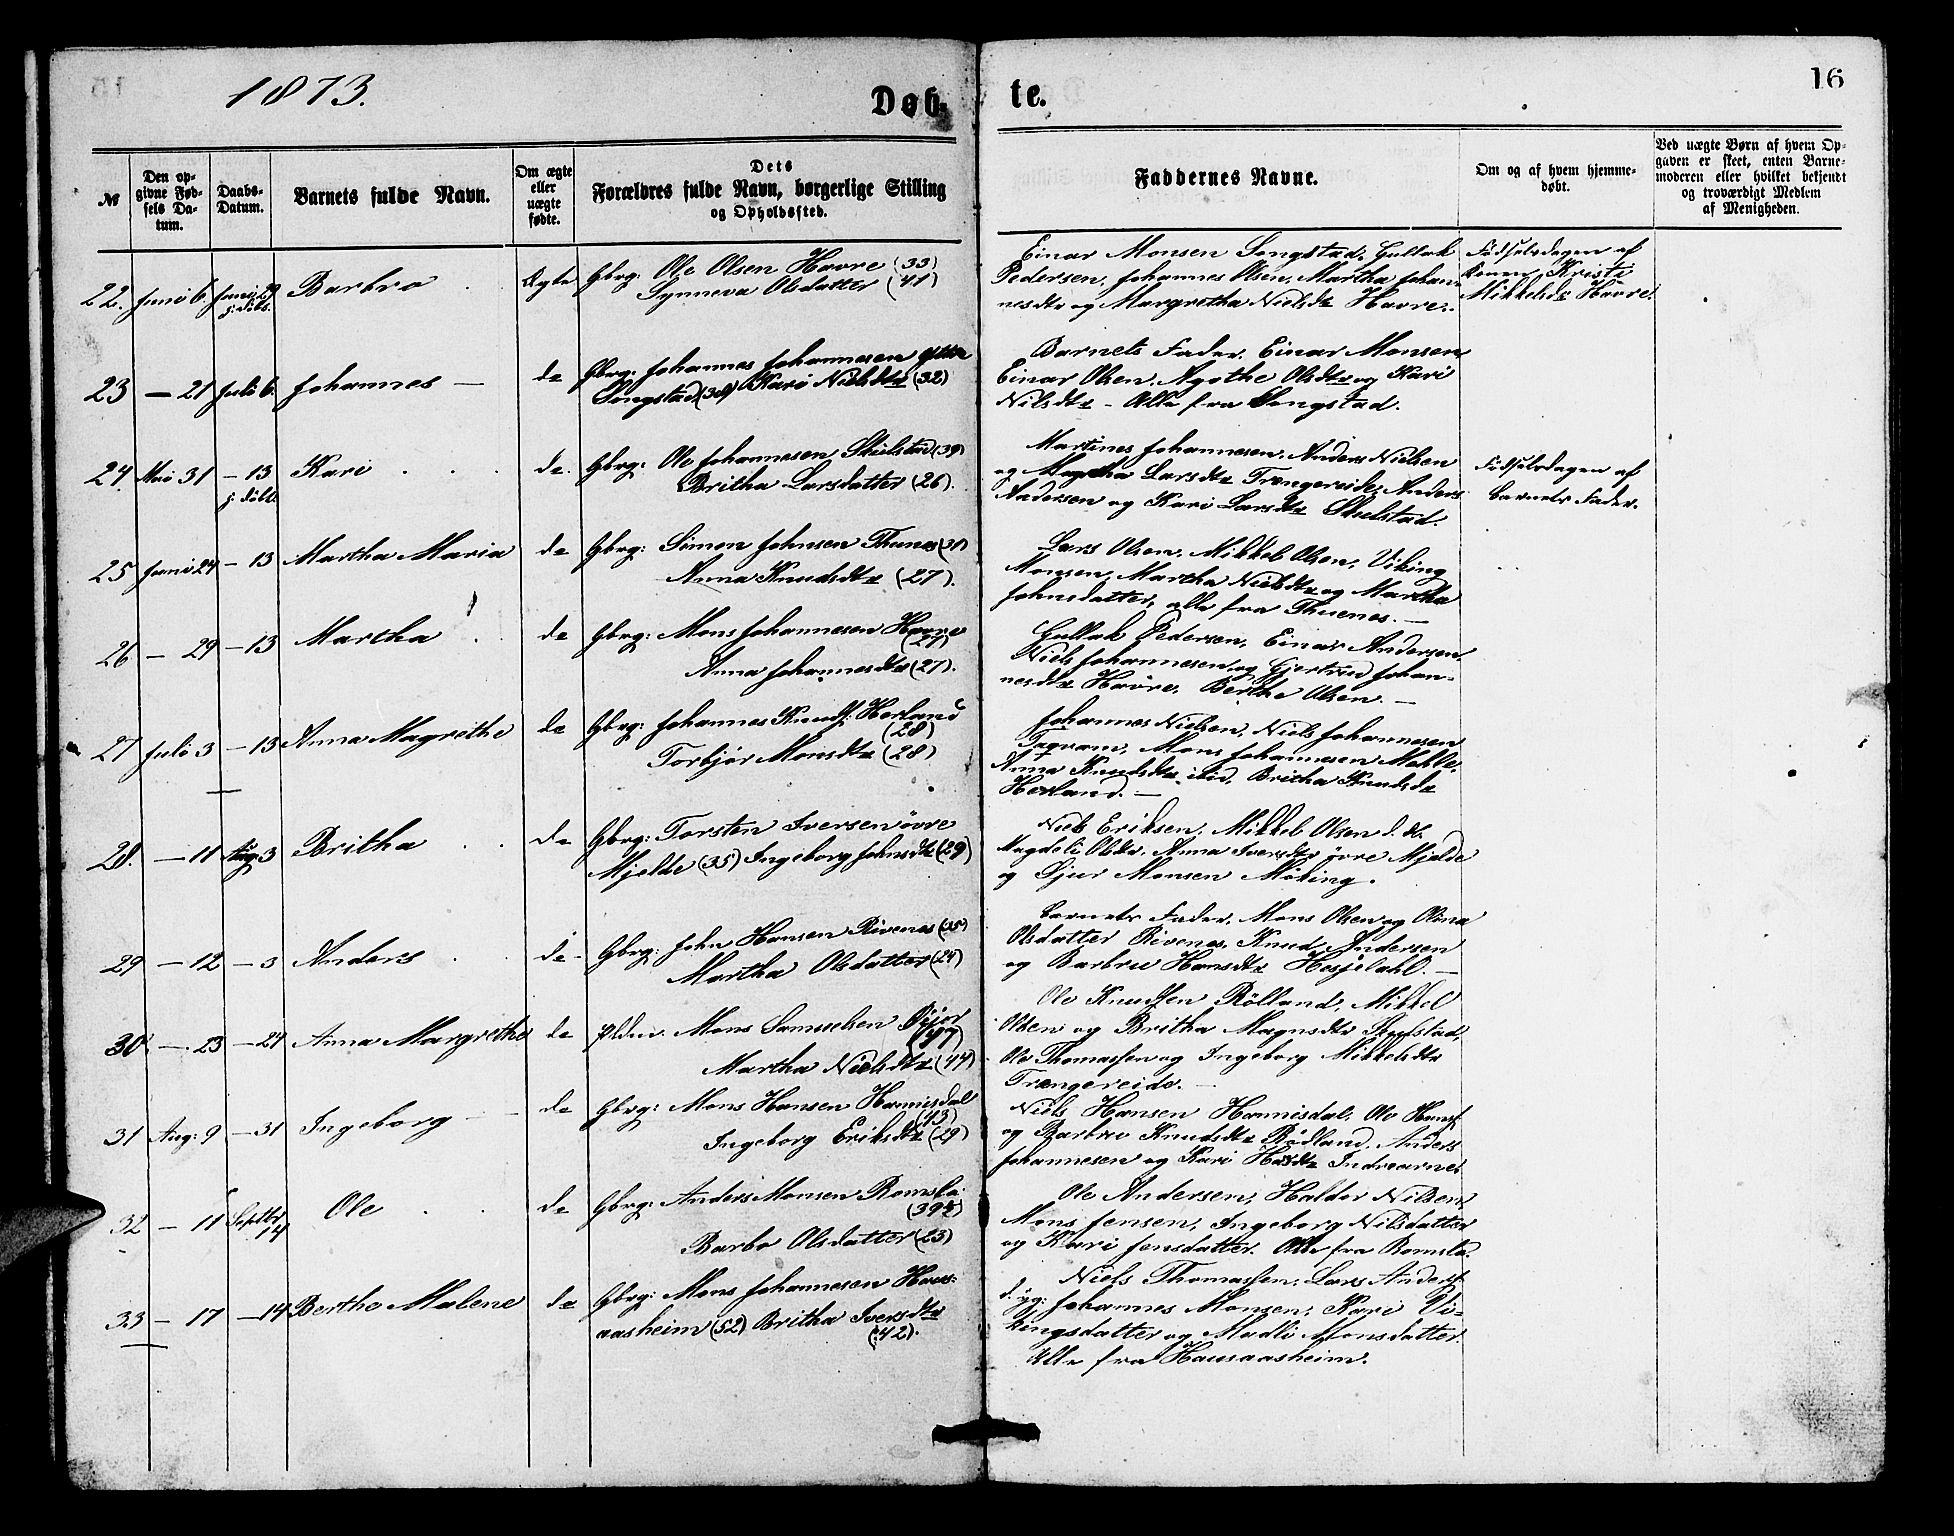 1873.
Døb-
te.
16
№
Den op-
givne Fød-
sels Da-
tum.
Daabs-
Datum.
Barnets fulde Navn.
Om ægte
eller
uægte
fødte.
Dets
Forældres fulde Navn, borgerlige Stilling
og Opholdssted.
Faddernes Navne.
Om og af hvem hjemme-
døbt.
Ved uægte Børn af hvem Op-
gaven er skeet, enten Barne-
moderen eller hvilket bekjendt
og troværdigt Medlem
af Menigheden.
22. Juni 6. Juni 29 Barbro Ægte Gbrg: Ole Olsen Havre (33)
Synneva Olsdatter (41)
Einar Monsen Songstad, Gullak
Pedersen, Johannes Olsen, Martha Johan-
nesdtr og Margretha Nielsdtr Havre.
Fødselsdagen af
Konen Kristi
Mikkelsdr Havre.
23 – 21 Juli 6. Johannes – de Gbrg: Johannes Johannesen ytre
Songstad (38) Kari Nielsdtr (32)
Barnets Fader, Einar Monsen
Einar Olsen, Agothe Olsdtr og Kari
Nilsdtr – Alle fra Songstad.
24. Mai 31 – 13 Kari de Gbrg: Ole Johannesen Skulstad (39)
Britha Larsdatter (26).
Martines Johannesen, Anders Nielsen
og Magtha Larsdtr Trængereide, Anders
Andersen og Kari Larsdtr Skulstad.
Fødselsdagen af
barnets Fader.
25 Juni 24 – 13 Martha Maria de Gbrg: Simon Johnsen Thunes (31)
Anna Knudsdtr (27).
Lars Olsen, Mikkel Olsen, Viking
Monsen, Martha Nielsdtr og Martha
Johnsdatter, alle fra Thuenes. –
26 – 29 – 13 Martha de Gbrg: Mons Johannesen Havre
(27)
Anna Johannesdtr (27).
Gullak Pedersen, Einar Andersen,
Niels Johannesen og Gjertrud Johan-
nesdtr Havre, Berthe Olsen. –
27 Juli 3 – 13 Anna Magrethe de Gbrg: Johannes Knuds: Herland
(28)
Torbjør Monsdtr (28)
Johannes Nielsen, Niels Johannesen
Tagvam, Mons Johannesen Mehle,
Anna Knudsdtr ibid, Britha Knudsdtr
Herland. –
28. – 11 Aug. 3 Britha de Gbrg: Torsten Iversen øvre
Mjelde (35) Ingeborg Johnsdtr (29)
Niels Eriksen, Mikkel Olsen d. æ.
Magdeli Olsdtr, Anna Iversdtr øvre Mjelde
og Sjur Monsen Møking.
29 – 12 – 3 Anders de Gbrg: John Hansen Rivenes (35)
Martha Olsdatter (24)
barnets Fader, Mons Olsen og Olina
Olsdatter Rivenes, Knud Andersen
og Barbru Hansdtr Hesjedahl. –
30. – 23 – 24 Anna Margrethe de Mons Samuelsen Øijor
(47)
Martha Nielsdtr (44)
Ole Knudsen Rölland, Mikkel
Olsen og Britha Magnsdtr Skulstad,
Ole Thomassen og Ingeborg Mikkelsdtr
Trængereide. –
31 Aug: 9 – 31 Ingeborg – de Gbrg: Mons Hansen Hannisdal
(43)
Ingeborg Eriksdtr (29)
Niels Hansen Hannisdal, Ole Hans:
og Barbru Knudsdtr Rødland, Anders
Johannesen og Kari Hansdtr Indrearne.
32 – 11 Septbr 14 Ole de Gbrg: Anders Monsen Romslo
(39)
Barbo Olsdatter (23)
Ole Andersen, Haldor Nilsen,
Mons Jensen, Ingeborg Nilsdatter
og Kari Jensdatter. Alle fra Romslo.
33 – 17 – 14 Berthe Malene de Gbrg: Mons Johannesen Haus-
aasheim (52) Britha Iversdtr
(42).
Niels Thomassen, Lars Anders:
d. yg: Johannes Monsen, Kari Vi-
kingsdatter og Madli Monsdatter
Alle fra Hausaasheim.